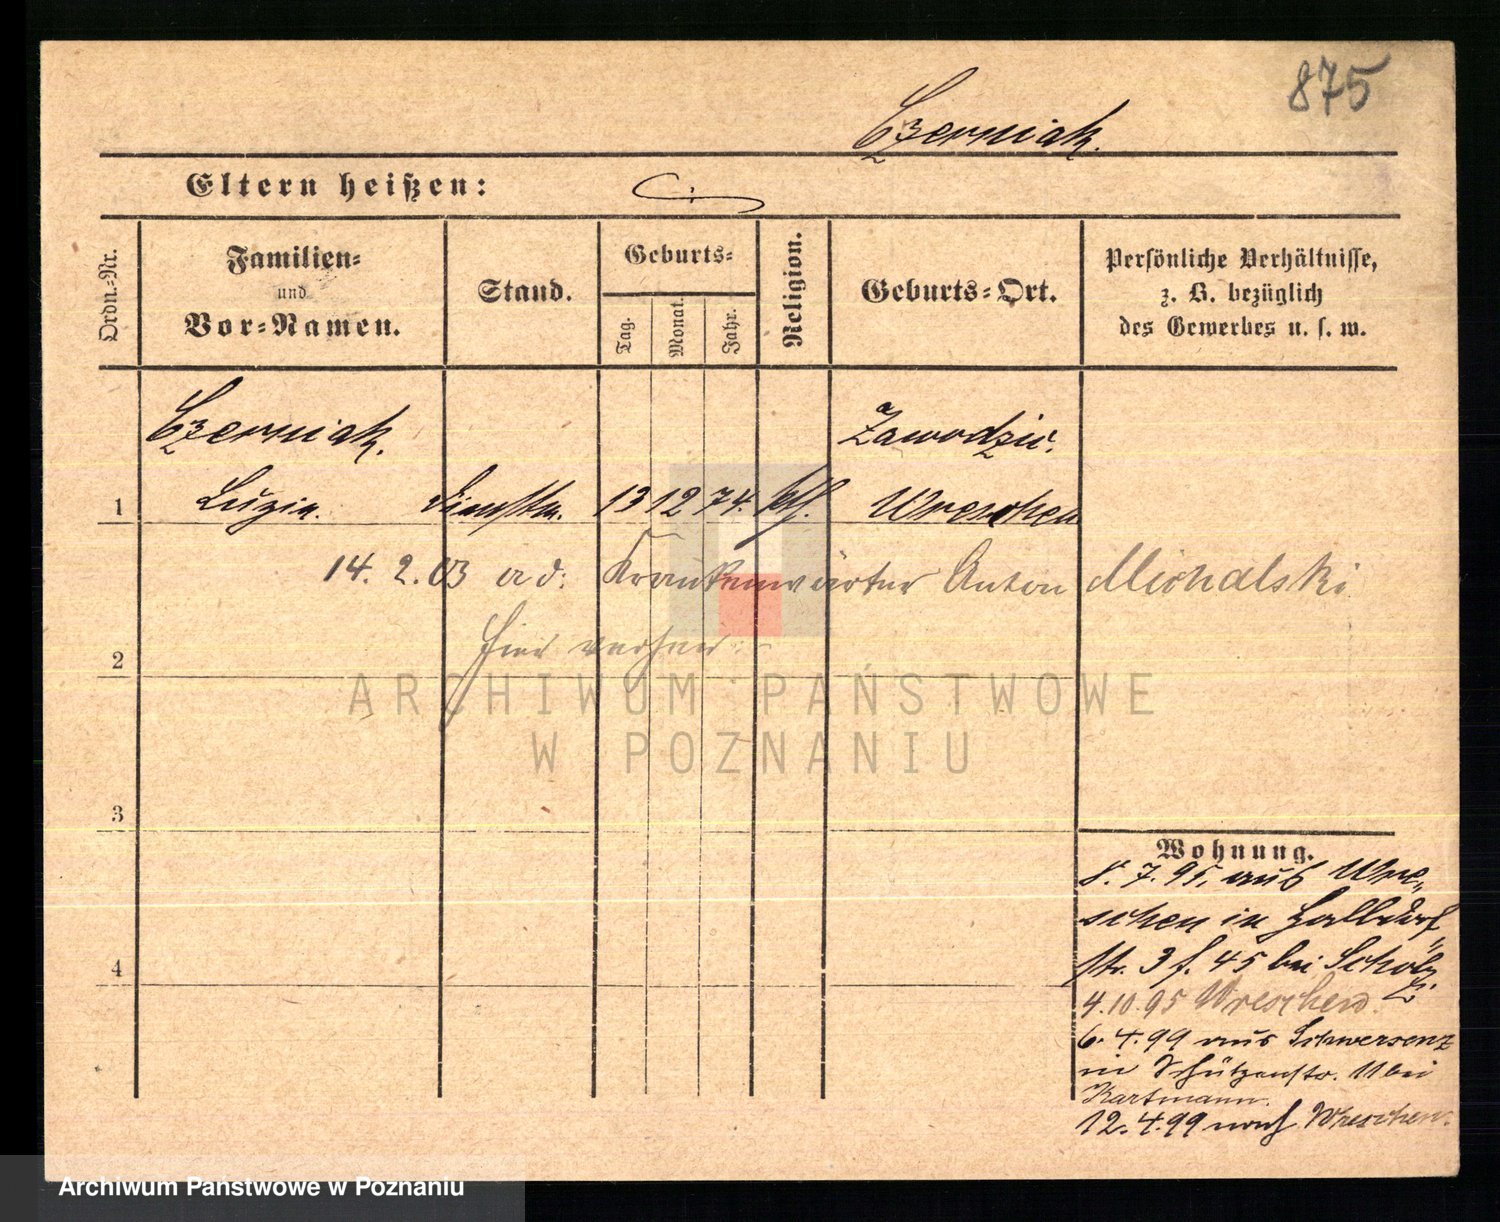 875
Czerniak.
Eltern heißen:
Ordn.-Nr.
Familien-
und
Vor-Namen.
Stand.
Geburts-
Tag.
Monat.
Jahr.
Religion.
Geburts-Ort.
Persönliche Verhältnisse,
z. B. bezüglich
des Gewerbes u. s. w.
Czerniak.
Zawodzie.
1 Luzia. Dienstm. 13 12 74. kth. Wreschen
14. 2. 03 a d: Krankenwärter Anton Michalski
hier verh
2
ARCHIWUM PAŃSTWOWE
W POZNANIU
3
Wohnung.
8. 7. 95. aus Wre-
schen in Halldorf
4
str. 3 f. 45 bei Scholz
4.10.95 Wreschen.
6. 4. 99 aus Schwersenz
in Schützenstr. 11 bei
Kartmann.
12. 4. 99 nach Wreschen.
Archiwum Państwowe w Poznaniu